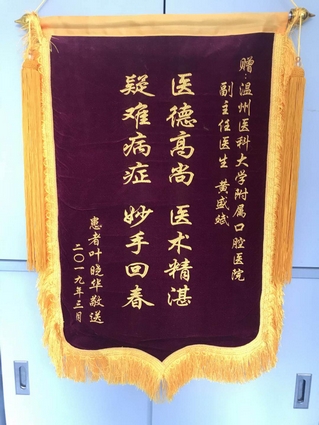 赠:温州医科大学附属口腔医院
副主任医生 黄盛斌
医德高尚 医术精湛
疑难病症 妙手回春
患者叶晓华敬送
二〇一九年三月